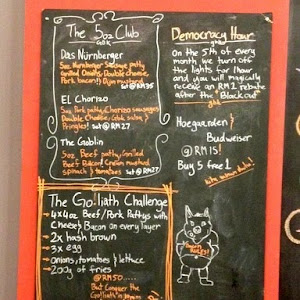 The 5oz Club
Das Nürnberger
5oz Nurnberger Sausage patty,
Grilled Onions, Double cheese,
Pork bacon!
EL Chorizo
5oz Pork patty, Chorizo sausages
Double Cheese,
Pringles! Set @ RM27
The Goblin
5oz Beef Patty, Grilled
Beef Bacon, Cream mustard
spinach & tomatoes Set @ RM27
Democracy Hour
On the 5th of every
month we turn off
the lights for 1hour
and you will magically
receive an RM1 rebate
after the "Blackout"
Hoegaarden
Budweiser
@ RM15!
Buy 5 free 1
The Goliath Challenge
4x4oz Beef/Pork Pattys with
Cheese & Bacon on every layer
2x hash brown
3x egg
onions, tomatoes & lettuce
200g of fries
@ RM50
But Conquer the